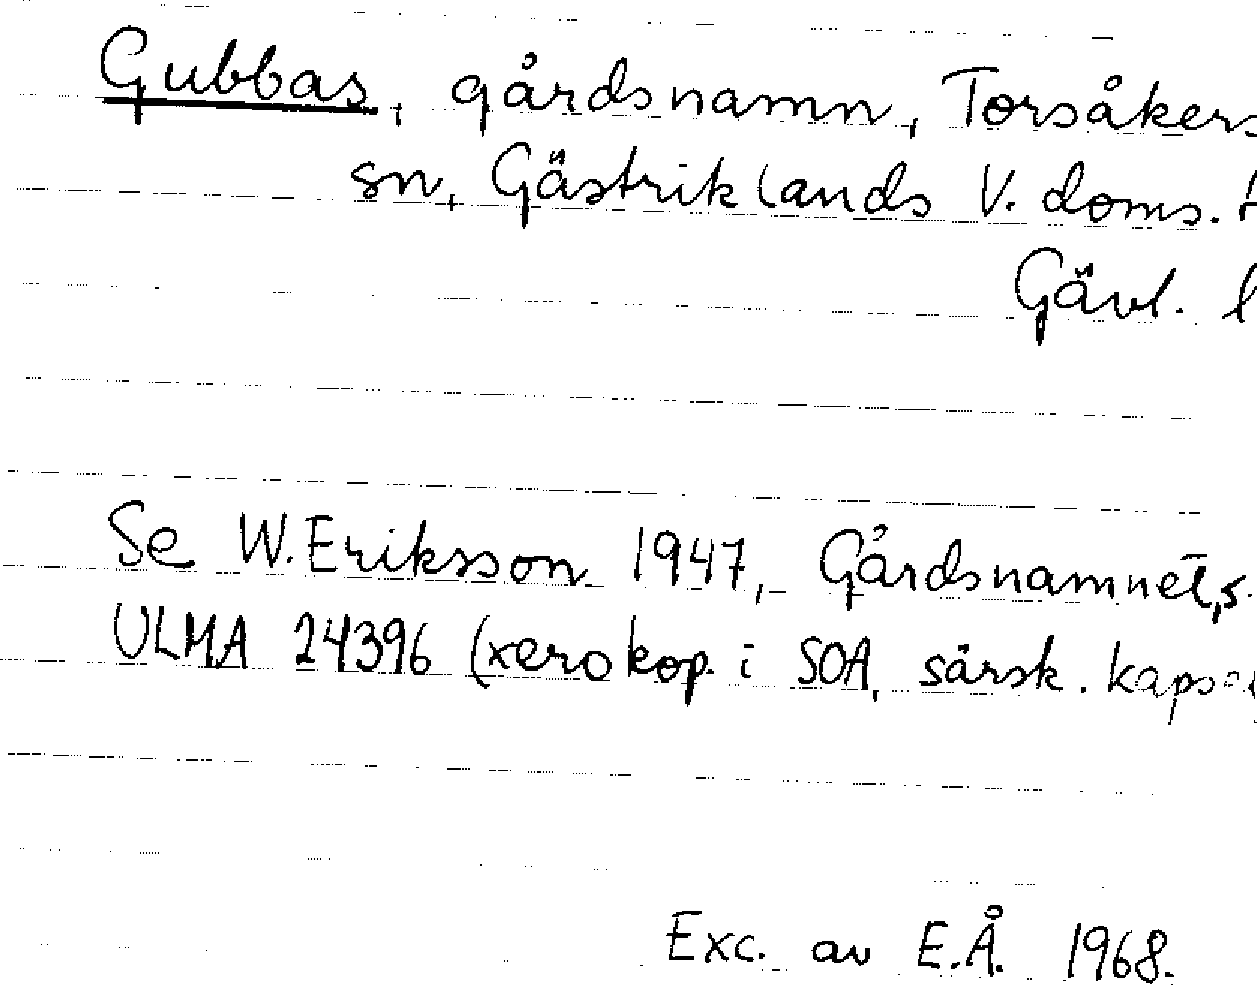 Gubbas, gårdsnamn, Torsåkers
sn, Gästriklands V. doms.
Gävl. l
Se W. Eriksson 1947, Gårdsnamnet, s.
ULMA 24396 (xerokop. i SOA, särsk.
Exc. av E.Å. 1968.